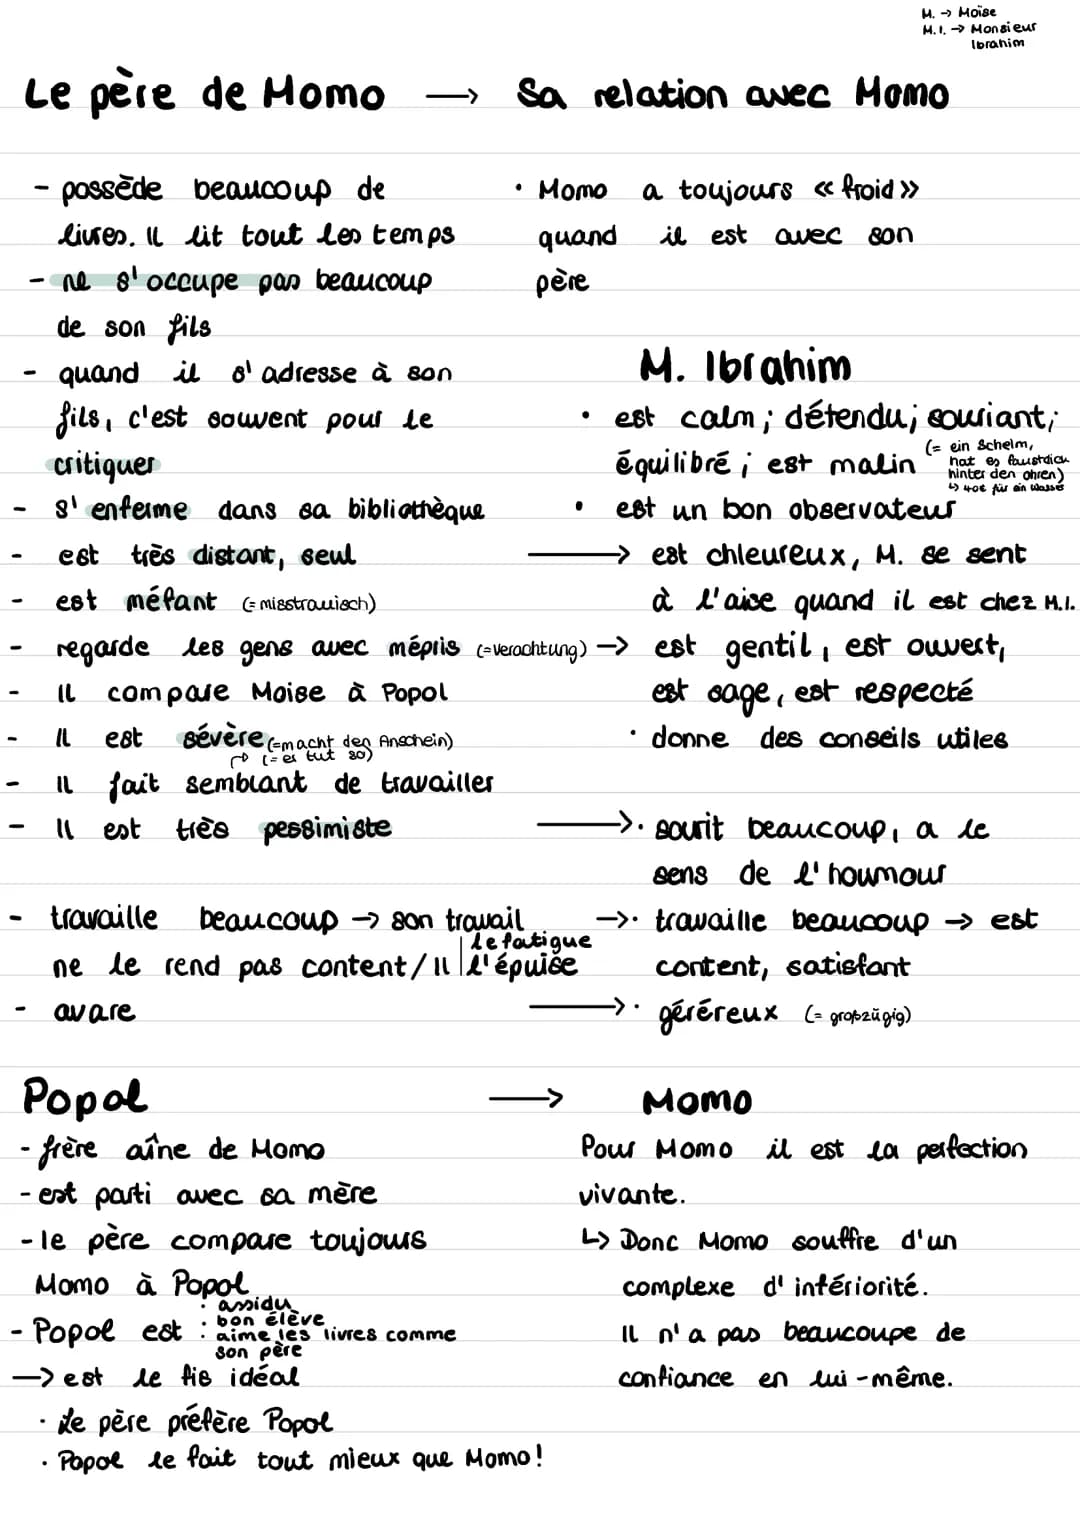 M. → Moïse
M.I. → Monsieur
Ibrahim
Le père de Momo → Sa relation avec Momo
- possède beaucoup de
livres. Il lit tout les temps
- ne s'occupe pas beaucoup
de son fils
- quand il s'adresse à son
fils, c'est souvent pour le
critiquer
- s'enferme dans sa bibliothèque
- est très distant, seul
- est méfant (= misstrauisch)
- regarde les gens avec mépris (=Verachtung) →
- Il compare Moise à Popol
- Il est sévère (=macht den Anschein)
↱ (= es tut so)
- Il fait semblant de travailler
- Il est très pessimiste
- travaille beaucoup → son travail
ne le rend pas content/ Il | le fatigue
l'épuise
- avare
• Momo a toujours « froid »
quand il est avec son
père
M. Ibrahim
• est calm ; détendu ; souriant ;
équilibré ; est malin (= ein Schelm,
hat es faustdick
hinter den ohren)
↳ 40€ für ein Wasser
• est un bon observateur
→ est chleureux, M. se sent
à l'aise quand il est chez M.I.
est gentil, est ouvert,
est sage, est respecté
• donne des conseils utiles
→ • sourit beaucoup, a le
sens de l'houmour
→ • travaille beaucoup → est
content, satisfant
→ • géréreux (= großzügig)
Popol → Momo
- frère aîne de Momo
- est parti avec sa mère
- le père compare toujours
Momo à Popol
- Popol est : • assidu
• bon élève
• aime les livres comme
son père
→ est le fis idéal
• Le père préfère Popol
• Popol le fait tout mieux que Momo!
Pour Momo il est la perfection
vivante.
↳ Donc Momo souffre d'un
complexe d'infériorité.
Il n'a pas beaucoupe de
confiance en lui-même.